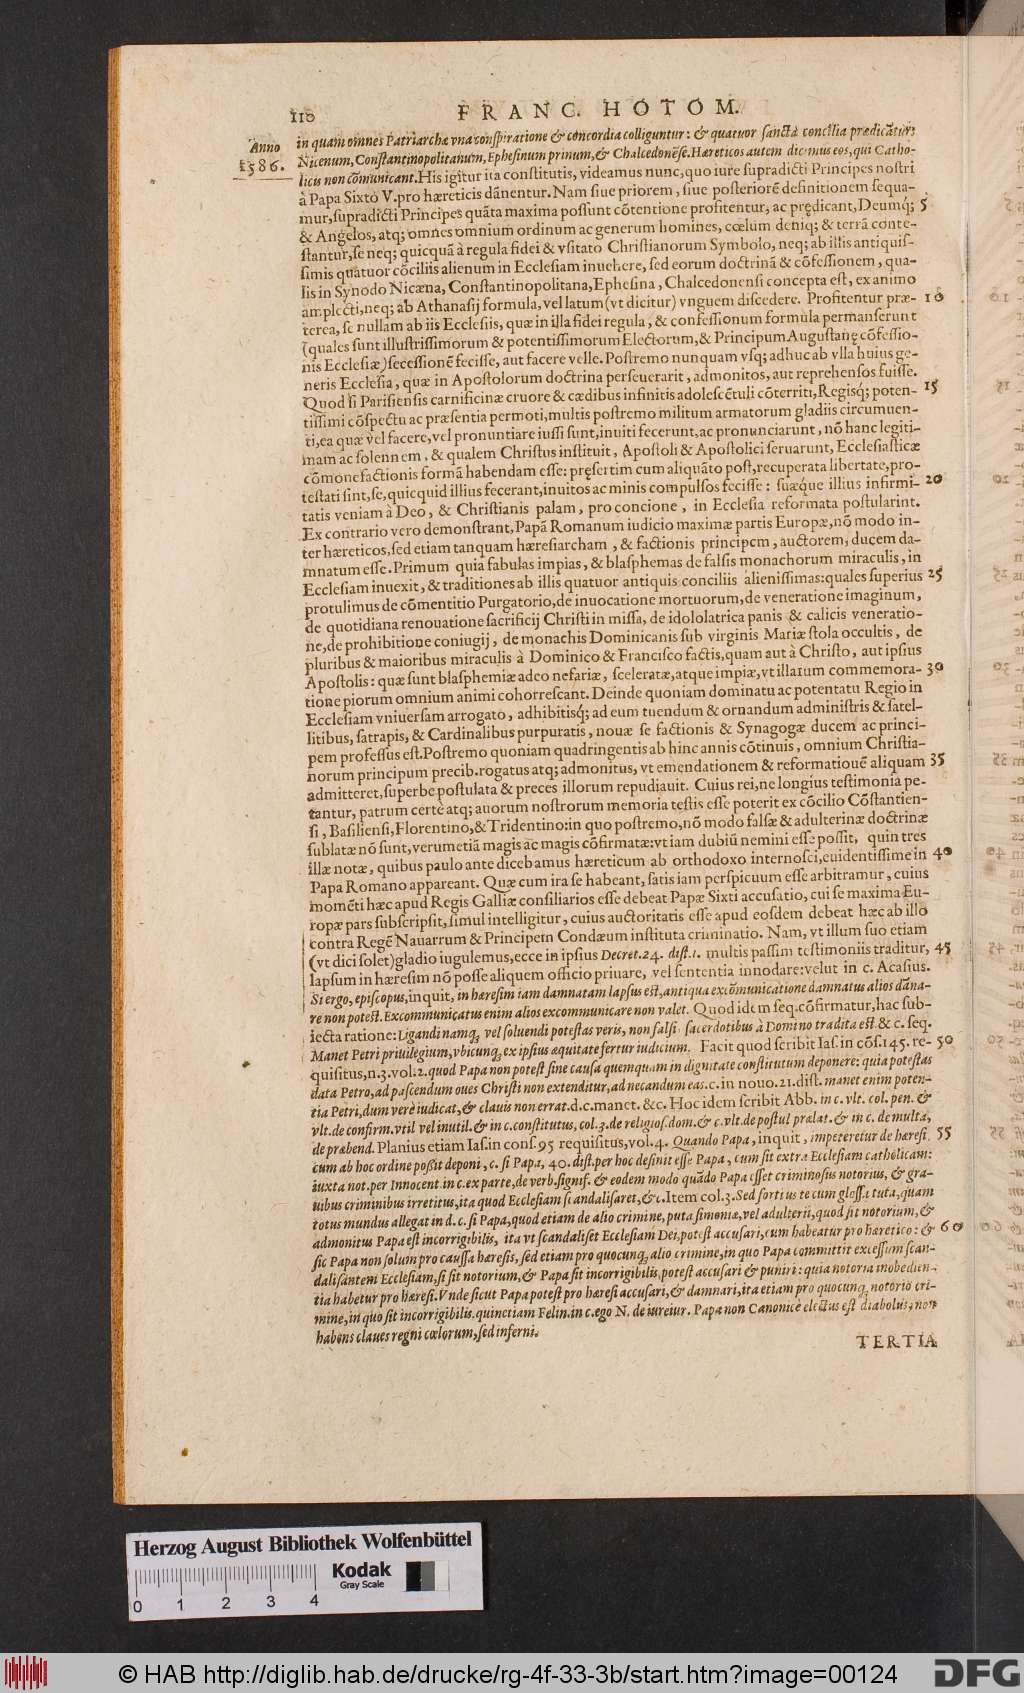 110 FRANC. HOTOM.
Anno
1586.
in quam omnes Patriarchæ vna conspiratione & concordia colliguntur: & quatuor sancta concilia prædicātur:
Nicenum, Constantinopolitanum, Ephesinum primum, & Chalcedonēse. Hæreticos autem dicimus eos, qui Catho-
licis non cōmunicant. His igitur ita constitutis, videamus nunc, quo iure supradicti Principes nostri
à Papa Sixto V. pro hæreticis dānentur. Nam siue priorem, siue posteriorē definitionem sequa-
mur, supradicti Principes quāta maxima possunt cōtentione profitentur, ac prędicant, Deumq; 5
& Angelos, atq; omnes omnium ordinum ac generum homines, cœlum deniq; & terrā conte-
stantur, se neq; quicquā à regula fidei & vsitato Christianorum Symbolo, neq; ab illis antiquis-
simis quatuor cōciliis alienum in Ecclesiam inuehere, sed eorum doctrinā & cōfessionem, qua-
lis in Synodo Nicæna, Constantinopolitana, Ephesina, Chalcedonensi concepta est, ex animo
amplecti, neq; ab Athanasij formula, vel latum (vt dicitur) vnguem discedere. Profitentur præ- 10
terea, se nullam ab iis Ecclesiis, quæ in illa fidei regula, & confessionum formula permanserunt
(quales sunt illustrissimorum & potentissimorum Electorum, & Principum Augustanę cōfessio-
nis Ecclesiæ) secessionē fecisse, aut facere velle. Postremo nunquam vsq; adhuc ab vlla huius ge-
neris Ecclesia, quæ in Apostolorum doctrina perseuerarit, admonitos, aut reprehensos fuisse.
Quod si Parisiensis carnificinæ cruore & cædibus infinitis adolescētuli cōterriti, Regisq; poten- 15
tissimi cōspectu ac præsentia permoti, multis postremo militum armatorum gladiis circumuen-
ti, ea quæ vel facere, vel pronuntiare iussi sunt, inuiti fecerunt, ac pronunciarunt, nō hanc legiti-
mam ac solennem, & qualem Christus instituit, Apostoli & Apostolici seruarunt, Ecclesiasticæ
cōmonefactionis formā habendam esse: pręsertim cum aliquāto post, recuperata libertate, pro-
testati sint, se, quicquid illius fecerant, inuitos ac minis compulsos fecisse: suæque illius infirmi- 20
tatis veniam à Deo, & Christianis palam, pro concione, in Ecclesia reformata postularint.
Ex contrario vero demonstrant, Papā Romanum iudicio maximæ partis Europæ, nō modo in-
ter hæreticos, sed etiam tanquam hæresiarcham, & factionis principem, auctorem, ducem da-
mnatum esse. Primum quia fabulas impias, & blasphemas de falsis monachorum miraculis, in
Ecclesiam inuexit, & traditiones ab illis quatuor antiquis conciliis alienissimas: quales superius 25
protulimus de cōmentitio Purgatorio, de inuocatione mortuorum, de veneratione imaginum,
de quotidiana renouatione sacrificij Christi in missa, de idololatrica panis & calicis veneratio-
ne, de prohibitione coniugij, de monachis Dominicanis sub virginis Mariæ stola occultis, de
pluribus & maioribus miraculis à Dominico & Francisco factis, quam aut à Christo, aut ipsius
Apostolis: quæ sunt blasphemiæ adeo nefariæ, sceleratæ, atque impiæ, vt illarum commemora- 30
tione piorum omnium animi cohorrescant. Deinde quoniam dominatu ac potentatu Regio in
Ecclesiam vniuersam arrogato, adhibitisq; ad eum tuendum & ornandum administris & satel-
litibus, satrapis, & Cardinalibus purpuratis, nouæ se factionis & Synagogæ ducem ac princi-
pem professus est. Postremo quoniam quadringentis ab hinc annis cōtinuis, omnium Christia-
norum principum precib. rogatus atq; admonitus, vt emendationem & reformationē aliquam 35
admitteret, superbe postulata & preces illorum repudiauit. Cuius rei, ne longius testimonia pe-
tantur, patrum certè atq; auorum nostrorum memoria testis esse poterit ex cōcilio Cōstantien-
si, Basiliensi, Florentino, & Tridentino: in quo postremo, nō modo falsæ & adulterinæ doctrinæ
sublatæ nō sunt, verumetiā magis ac magis cōfirmatæ: vt iam dubiū nemini esse possit, quin tres
illæ notæ, quibus paulo ante dicebamus hæreticum ab orthodoxo internosci, euidentissime in 40
Papa Romano appareant. Quæ cum ita se habeant, satis iam perspicuum esse arbitramur, cuius
momēti hæc apud Regis Galliæ consiliarios esse debeat Papæ Sixti accusatio, cui se maxima Eu-
ropæ pars subscripsit, simul intelligitur, cuius auctoritatis esse apud eosdem debeat hæc ab illo
contra Regē Nauarrum & Principem Condæum instituta criminatio. Nam, vt illum suo etiam
(vt dici solet) gladio iugulemus, ecce in ipsius Decret. 24. dist. 1. multis passim testimoniis traditur, 45
lapsum in hæresim nō posse aliquem officio priuare, vel sententia innodare: velut in c. Acasius.
Si ergo, episcopus, inquit, in hæresim iam damnatam lapsus est, antiqua excōmunicatione damnatus alios dāna-
re non potest. Excommunicatus enim alios excommunicare non valet. Quod idem seq. cōfirmatur, hac sub-
iecta ratione: Ligandi namq; vel soluendi potestas veris, non falsis sacerdotibus à Domino tradita est. & c. seq.
Manet Petri priuilegium, vbicunq; ex ipsius æquitate fertur iudicium. Facit quod scribit Ias. in cōs. 145. re- 50
quisitus, n. 3. vol. 2. quod Papa non potest sine causa quemquam in dignitate constitutum deponere: quia potestas
data Petro, ad pascendum oues Christi non extenditur, ad necandum eas. c. in nouo. 21. dist. manet enim poten-
tia Petri, dum verè iudicat, & clauis non errat. d. c. manet. &c. Hoc idem scribit Abb. in c. vlt. col. pen. &
vlt. de confirm. vtil vel inutil. & in c. constitutus, col. 3. de religios. dom. & c. vlt. de postul prælat. & in c. de multa,
de præbend. Planius etiam Ias. in cons. 95 requisitus, vol. 4. Quando Papa, inquit, impeteretur de hæresi 55
cum ab hoc ordine poßit deponi, c. si Papa, 40. dist. per hoc definit esse Papa, cum sit extra Ecclesiam catholicam:
iuxta not. per Innocent. in c. ex parte, de verb. signif. & eodem modo quādo Papa esset criminosus notorius, & gra-
uibus criminibus irretitus, ita quod Ecclesiam scandalisaret, &c. Item col. 3. Sed fortius te cum glossa tuta, quam
totus mundus allegat in d. c. si Papa, quod etiam de alio crimine, puta simoniæ, vel adulterii, quod sit notorium, &
admonitus Papa est incorrigibilis, ita vt scandaliset Ecclesiam Dei, potest accusari, cum habeatur pro hæretico: & 60
sic Papa non solum pro caussa hæresis, sed etiam pro quocunq; alio crimine, in quo Papa committit excessum scan-
dalisantem Ecclesiam, si sit notorium, & Papa sit incorrigibilis, potest accusari & puniri: quia notoria inobedien-
tia habetur pro hæresi. Vnde sicut Papa potest pro hæresi accusari, & damnari, ita etiam pro quocunq; notorio cri-
mine, in quo sit incorrigibilis. quinetiam Felin. in c. ego N. de iureiur. Papa non Canonicè electus est diabolus, non
habens claues regni cœlorum, sed inferni.
TERTIA
Herzog August Bibliothek Wolfenbüttel
Kodak
Gray Scale
0 1 2 3 4
© HAB http://diglib.hab.de/drucke/rg-4f-33-3b/start.htm?image=00124
DFG